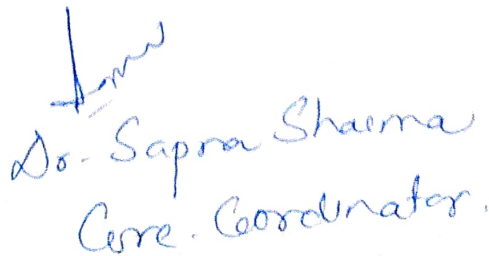 Dr. Sapna Sharma
Core. Coordinator.